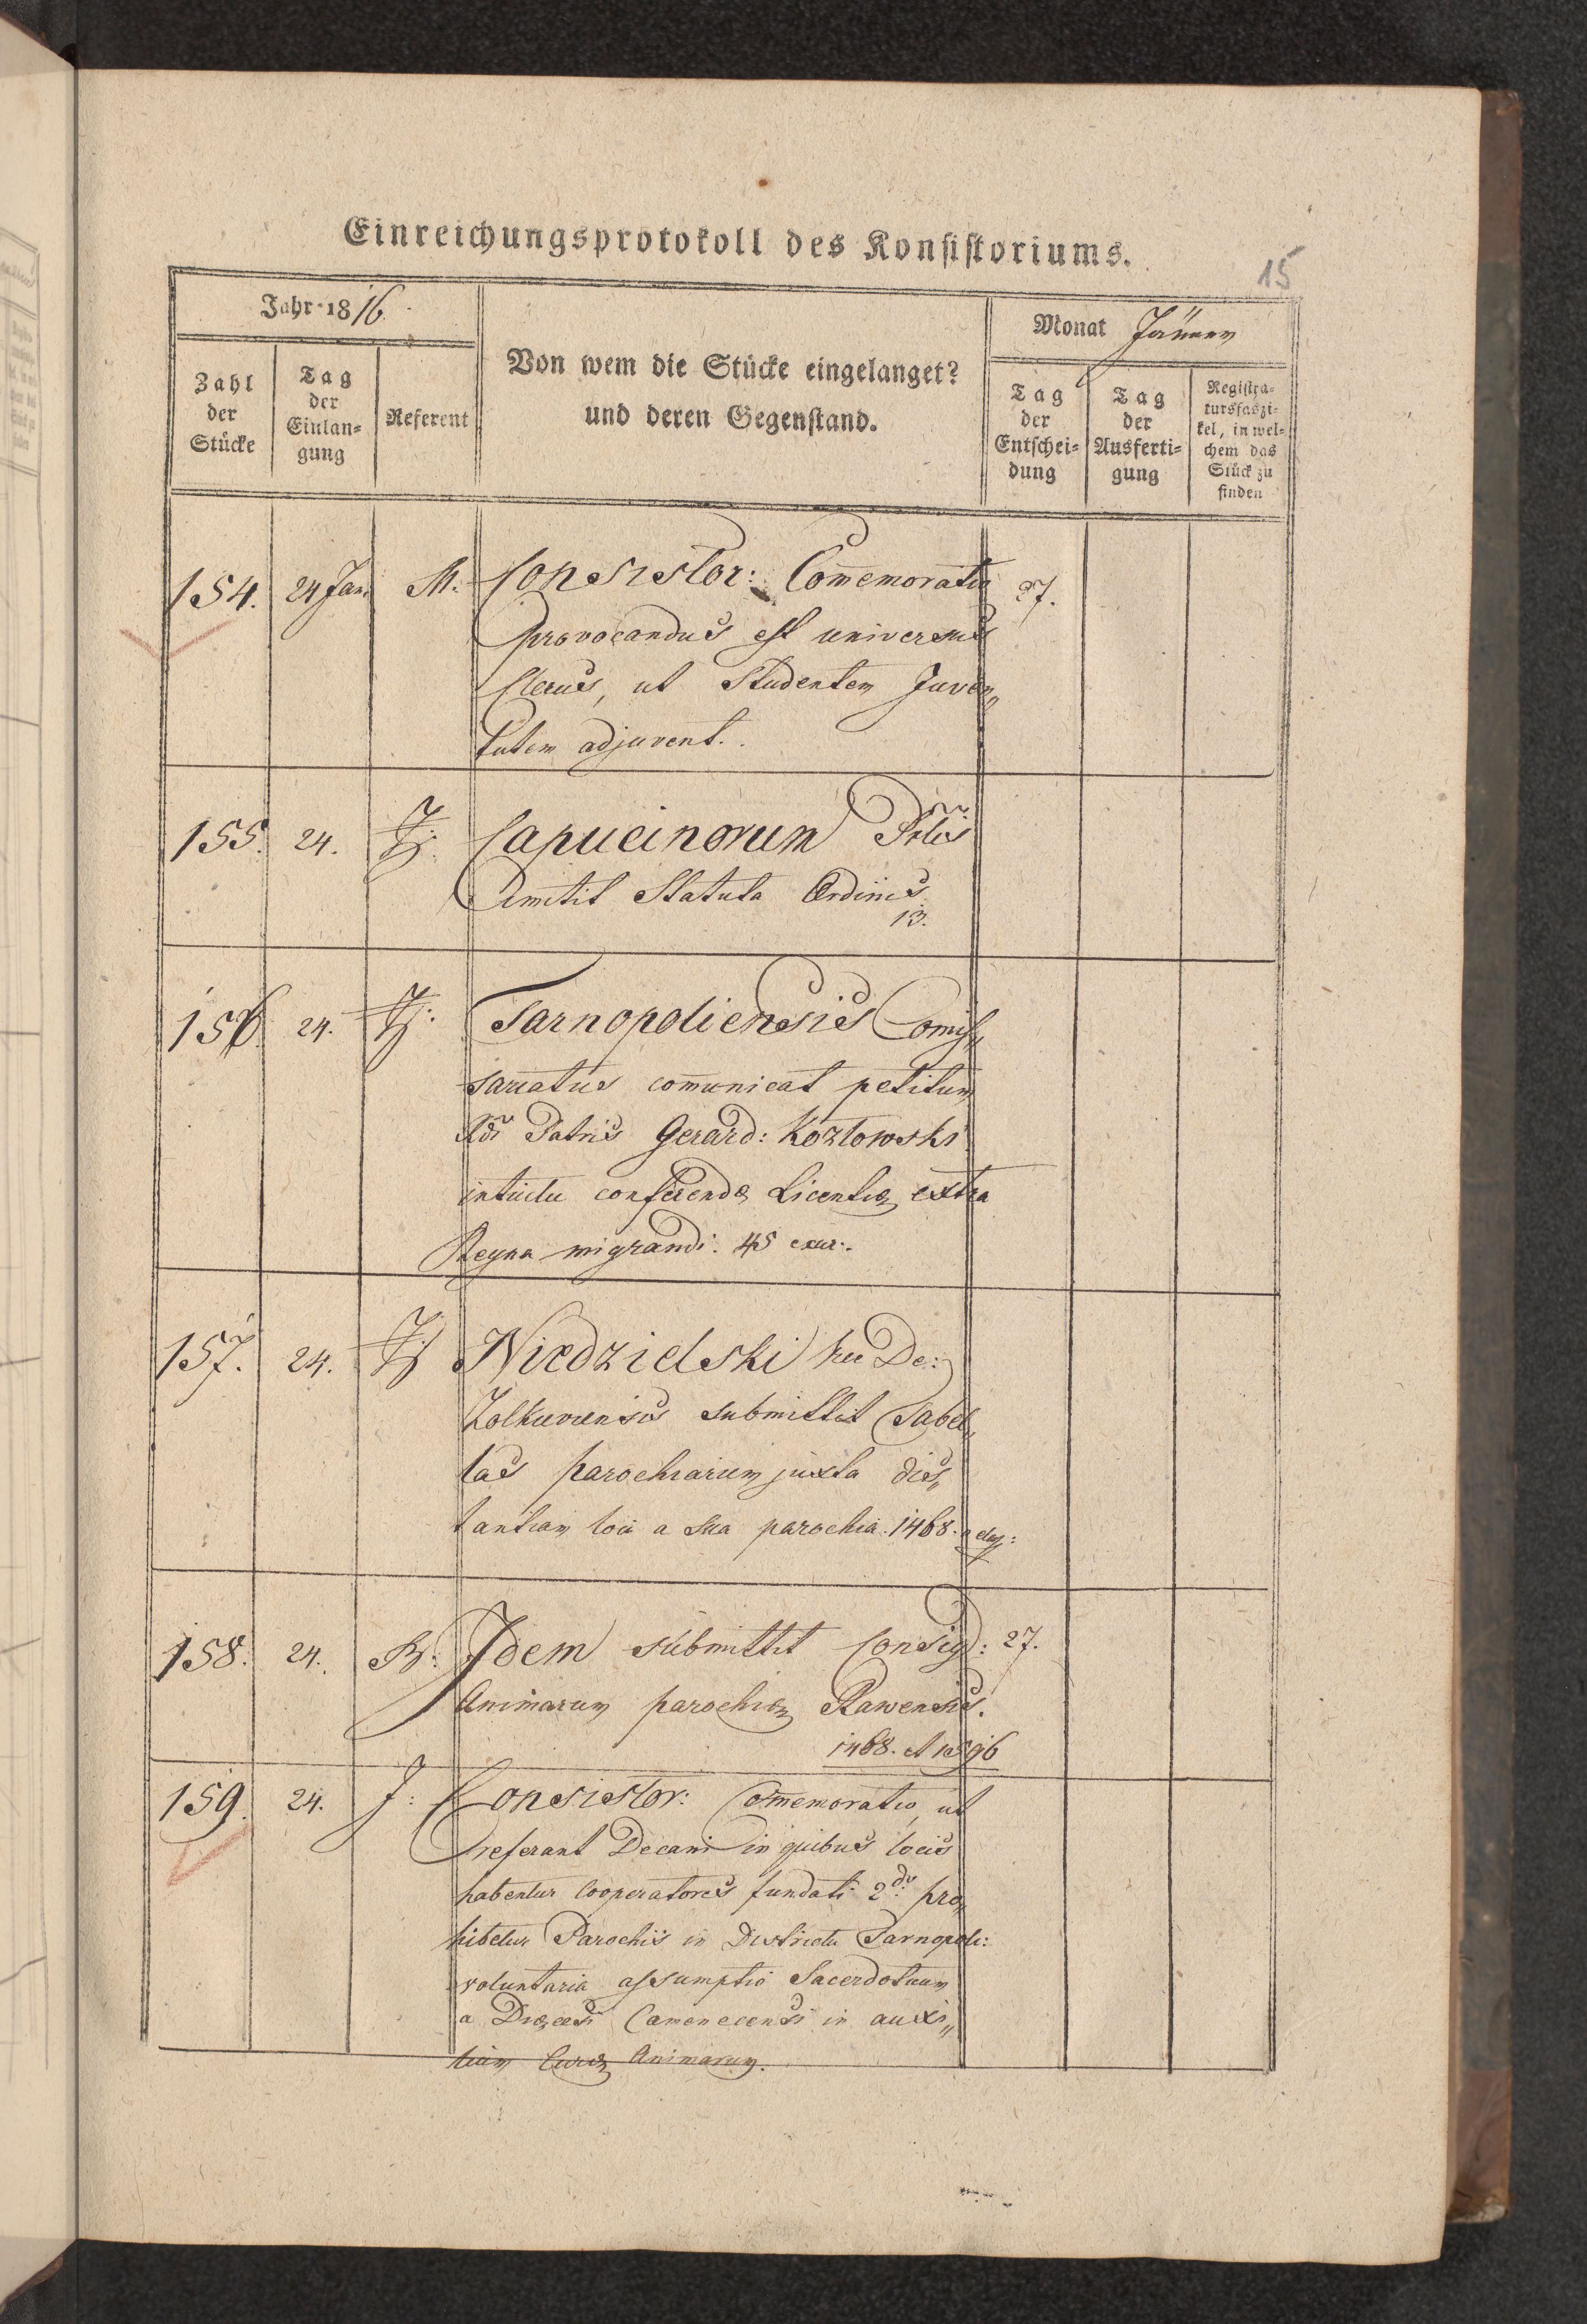 Einreichungsprotokoll des Konsistoriums.
15
Jahr 1816.
Monat Jänner
Zahl der Stücke
Tag der Einlan=gung
Referent
Von wem die Stücke eingelanget?
und deren Gegenstand.
Tag der Entschei=dung
Tag der Ausferti=gung
Registra=tursfaszi=kel, in wel=chem das Stück zu finden
154. 24 Jan. M. Consistor: Com̄emoratio 27.
provocandus est universus
Clerus, ut Studentem Juven„
tutem adjuvent.
155. 24. Capucinorum
Statuta Ordinis
13.
156 24. Tarnopoliensis Comis„
sariatus com̄unicat petitum
Patris Gerard: Kozlowski
intuitu conferendæ Licentiæ extra
Regna migrandi. 45 exur.
157. 24. Niedzielski De:
Zolkiewiensis submittit Tabel„
las parochiarum juxta dis„
tantiam loci a sua parochia. 1468.
158. 24. Idem submittit Consig: 27.
Animarum parochiæ Rawensis.
1468. A 1896
159. 24. J: Consistor: Com̄emoratio, ut
referant Decani in quibus locis
habentur Cooperatores fundati 2do pro„
hibetur Parochis in Districtu Tarnopoli:
voluntaria assumptio Sacerdotum
a Diœcesi Camenecensi in auxi„
lium Curæ Animarum.